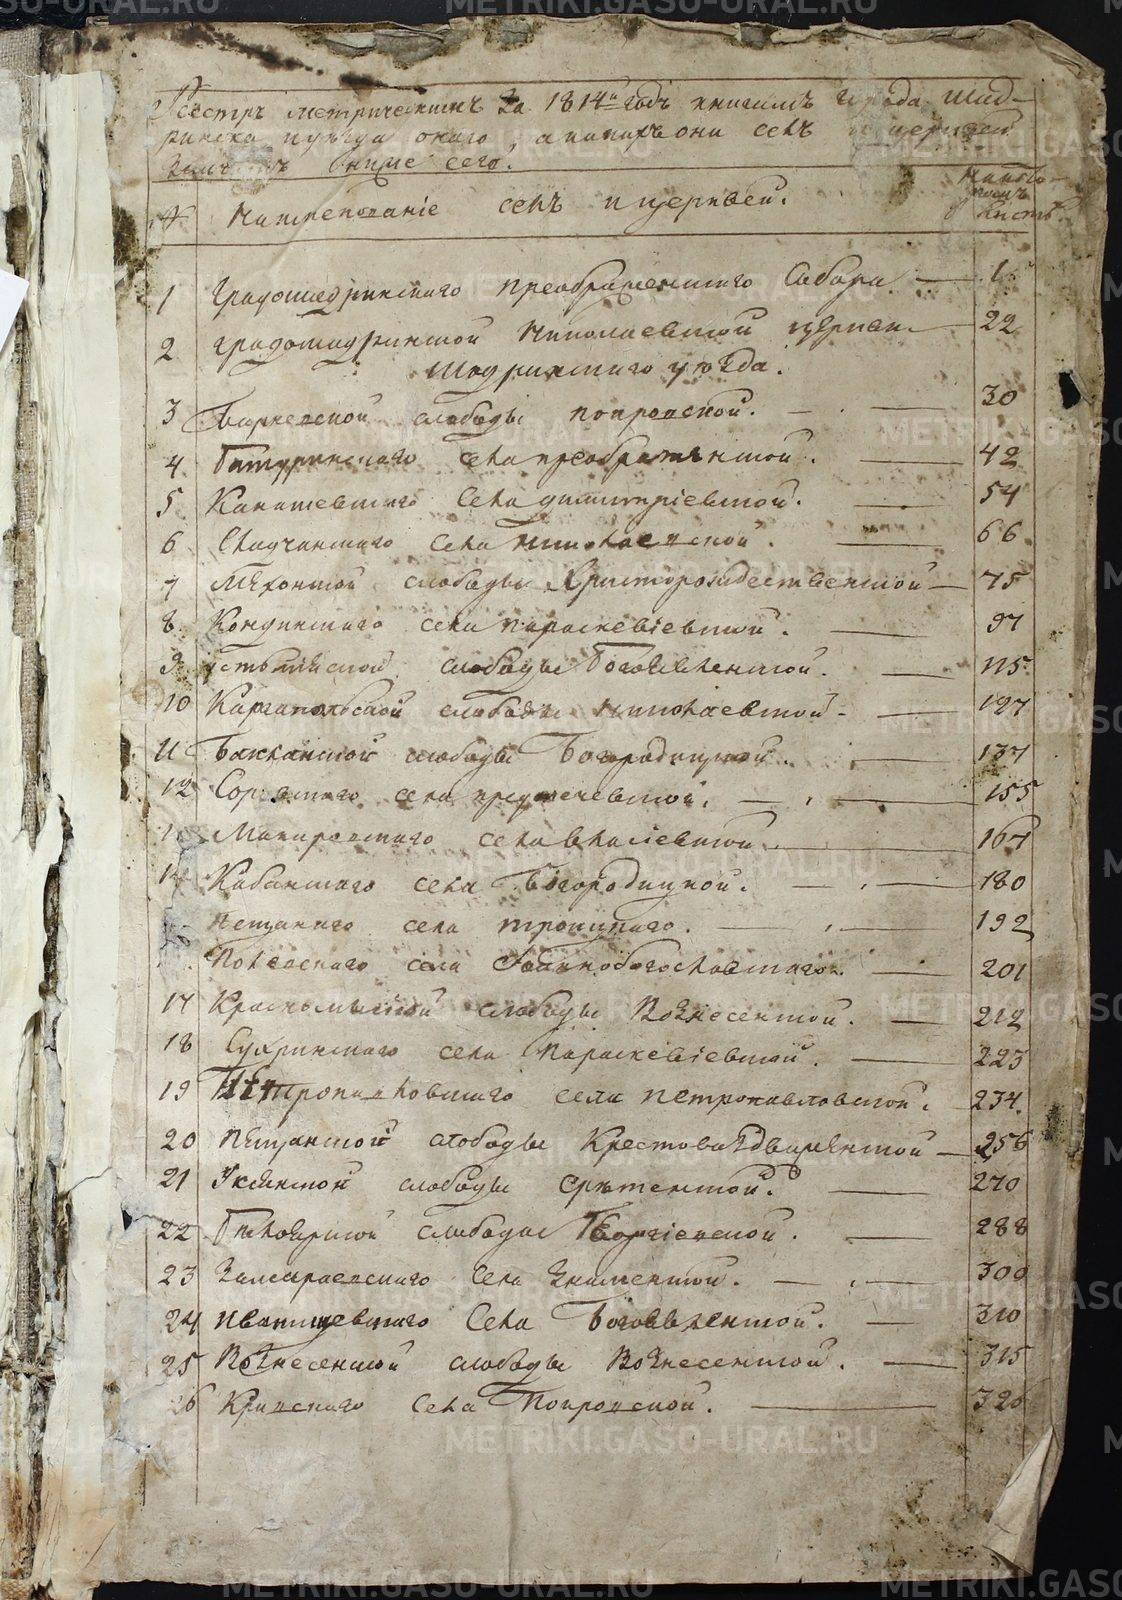 Реестръ метрическимъ за 1814й годъ книгамъ города Шад-
ринска и уезда онаго, а какихъ они селъ и церквей
значитъ ниже сего.
№ Наименованіе селъ и церквей. На кото-
ромъ
листѣ
1 Градошадринскаго преображенскаго Собора 1
2 градошадринской Николаевской церкви 22
Шадринскаго уѣзда.
3 Барневской слободы покровской. 30
4 Батуринскаго села преображенской. 42
5 Канашевскаго Села димитріевской. 54
6 Скадчанскаго Села николаевской. 66
7 Мѣхонской слободы Христорождественской 75
8 Кондинскаго села параскевіевской. 97
9 устьмиской слободы Богоявленской. 115
10 Каргапольской слободы николаевской 127
11 Бакланской слободы Богородицкой. 137
12 Соровскаго села предтечевской. 155
13 Макаровскаго села власіевской 167
14 Кабанскаго села Богородицкой. 180
Песчанаго села троицкаго. 192
Полевскаго села Іоаннобогословскаго 201
17 Красномыской слободы Вознесенской. 212
18 Сухринскаго села Параскевіевской. 223
19 Петропавловскаго села петропавловской. 234.
20 Песчанской слободы Крестовоздвиженской 256
21 Уксянской слободы срѣтенской. 270
22 Бѣлоярской слободы Георгіевской. 288
23 Замараевскаго Села Знаменской. 300
24 иванищевскаго Села Богоявленской. 310
25 Вознесенской слободы Вознесенской. 315
26 Кривскаго Села Покровской. 326
METRIKI.GASO-URAL.RU